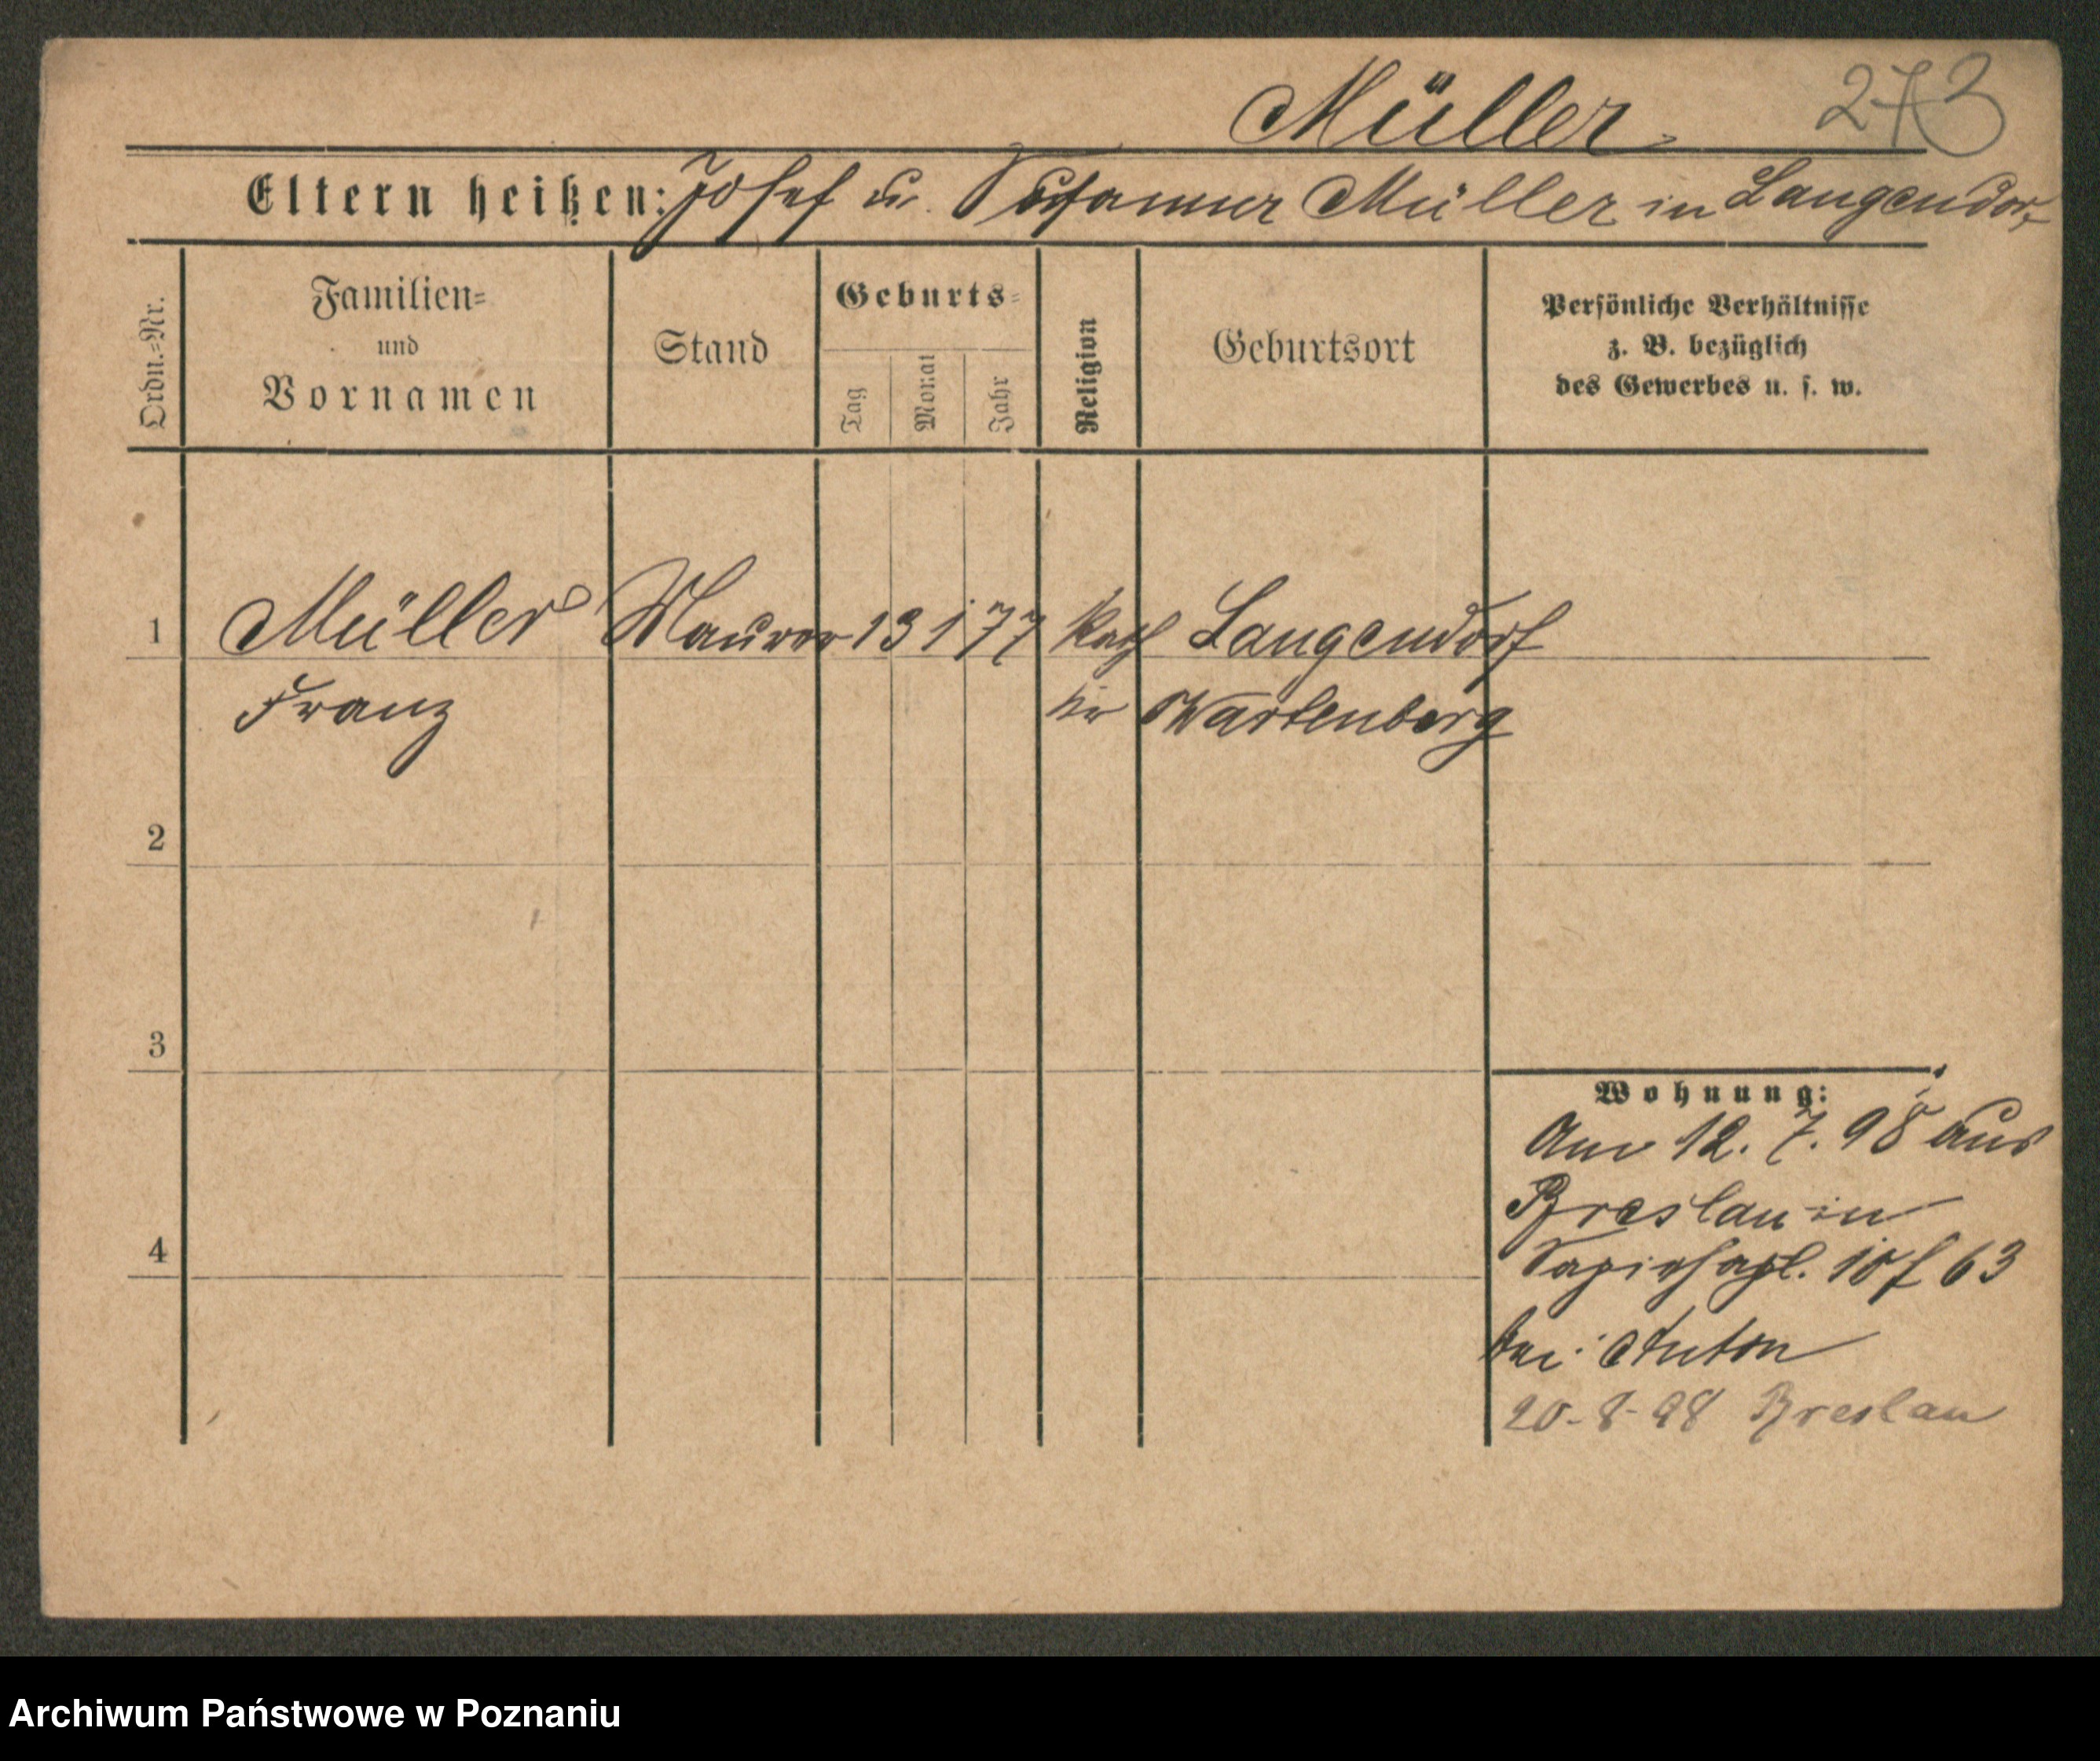 Müller 273
Eltern heißen: Josef u. Susanna Müller in Langendorf
Ordn.=Nr.
Familien=
und
Vornamen
Stand
Geburts=
Tag
Monat
Jahr
Religion
Geburtsort
Persönliche Verhältnisse
z. B. bezüglich
des Gewerbes u. s. w.
1 Müller Maurer 13 1 77 kath Langendorf
Franz Wartenberg
2
3
Wohnung:
Am 12. 7. 98 aus
Breslau in
4
Sapiehapl. 10/ 63
bei Anton
20-8-98 Breslau
Archiwum Państwowe w Poznaniu